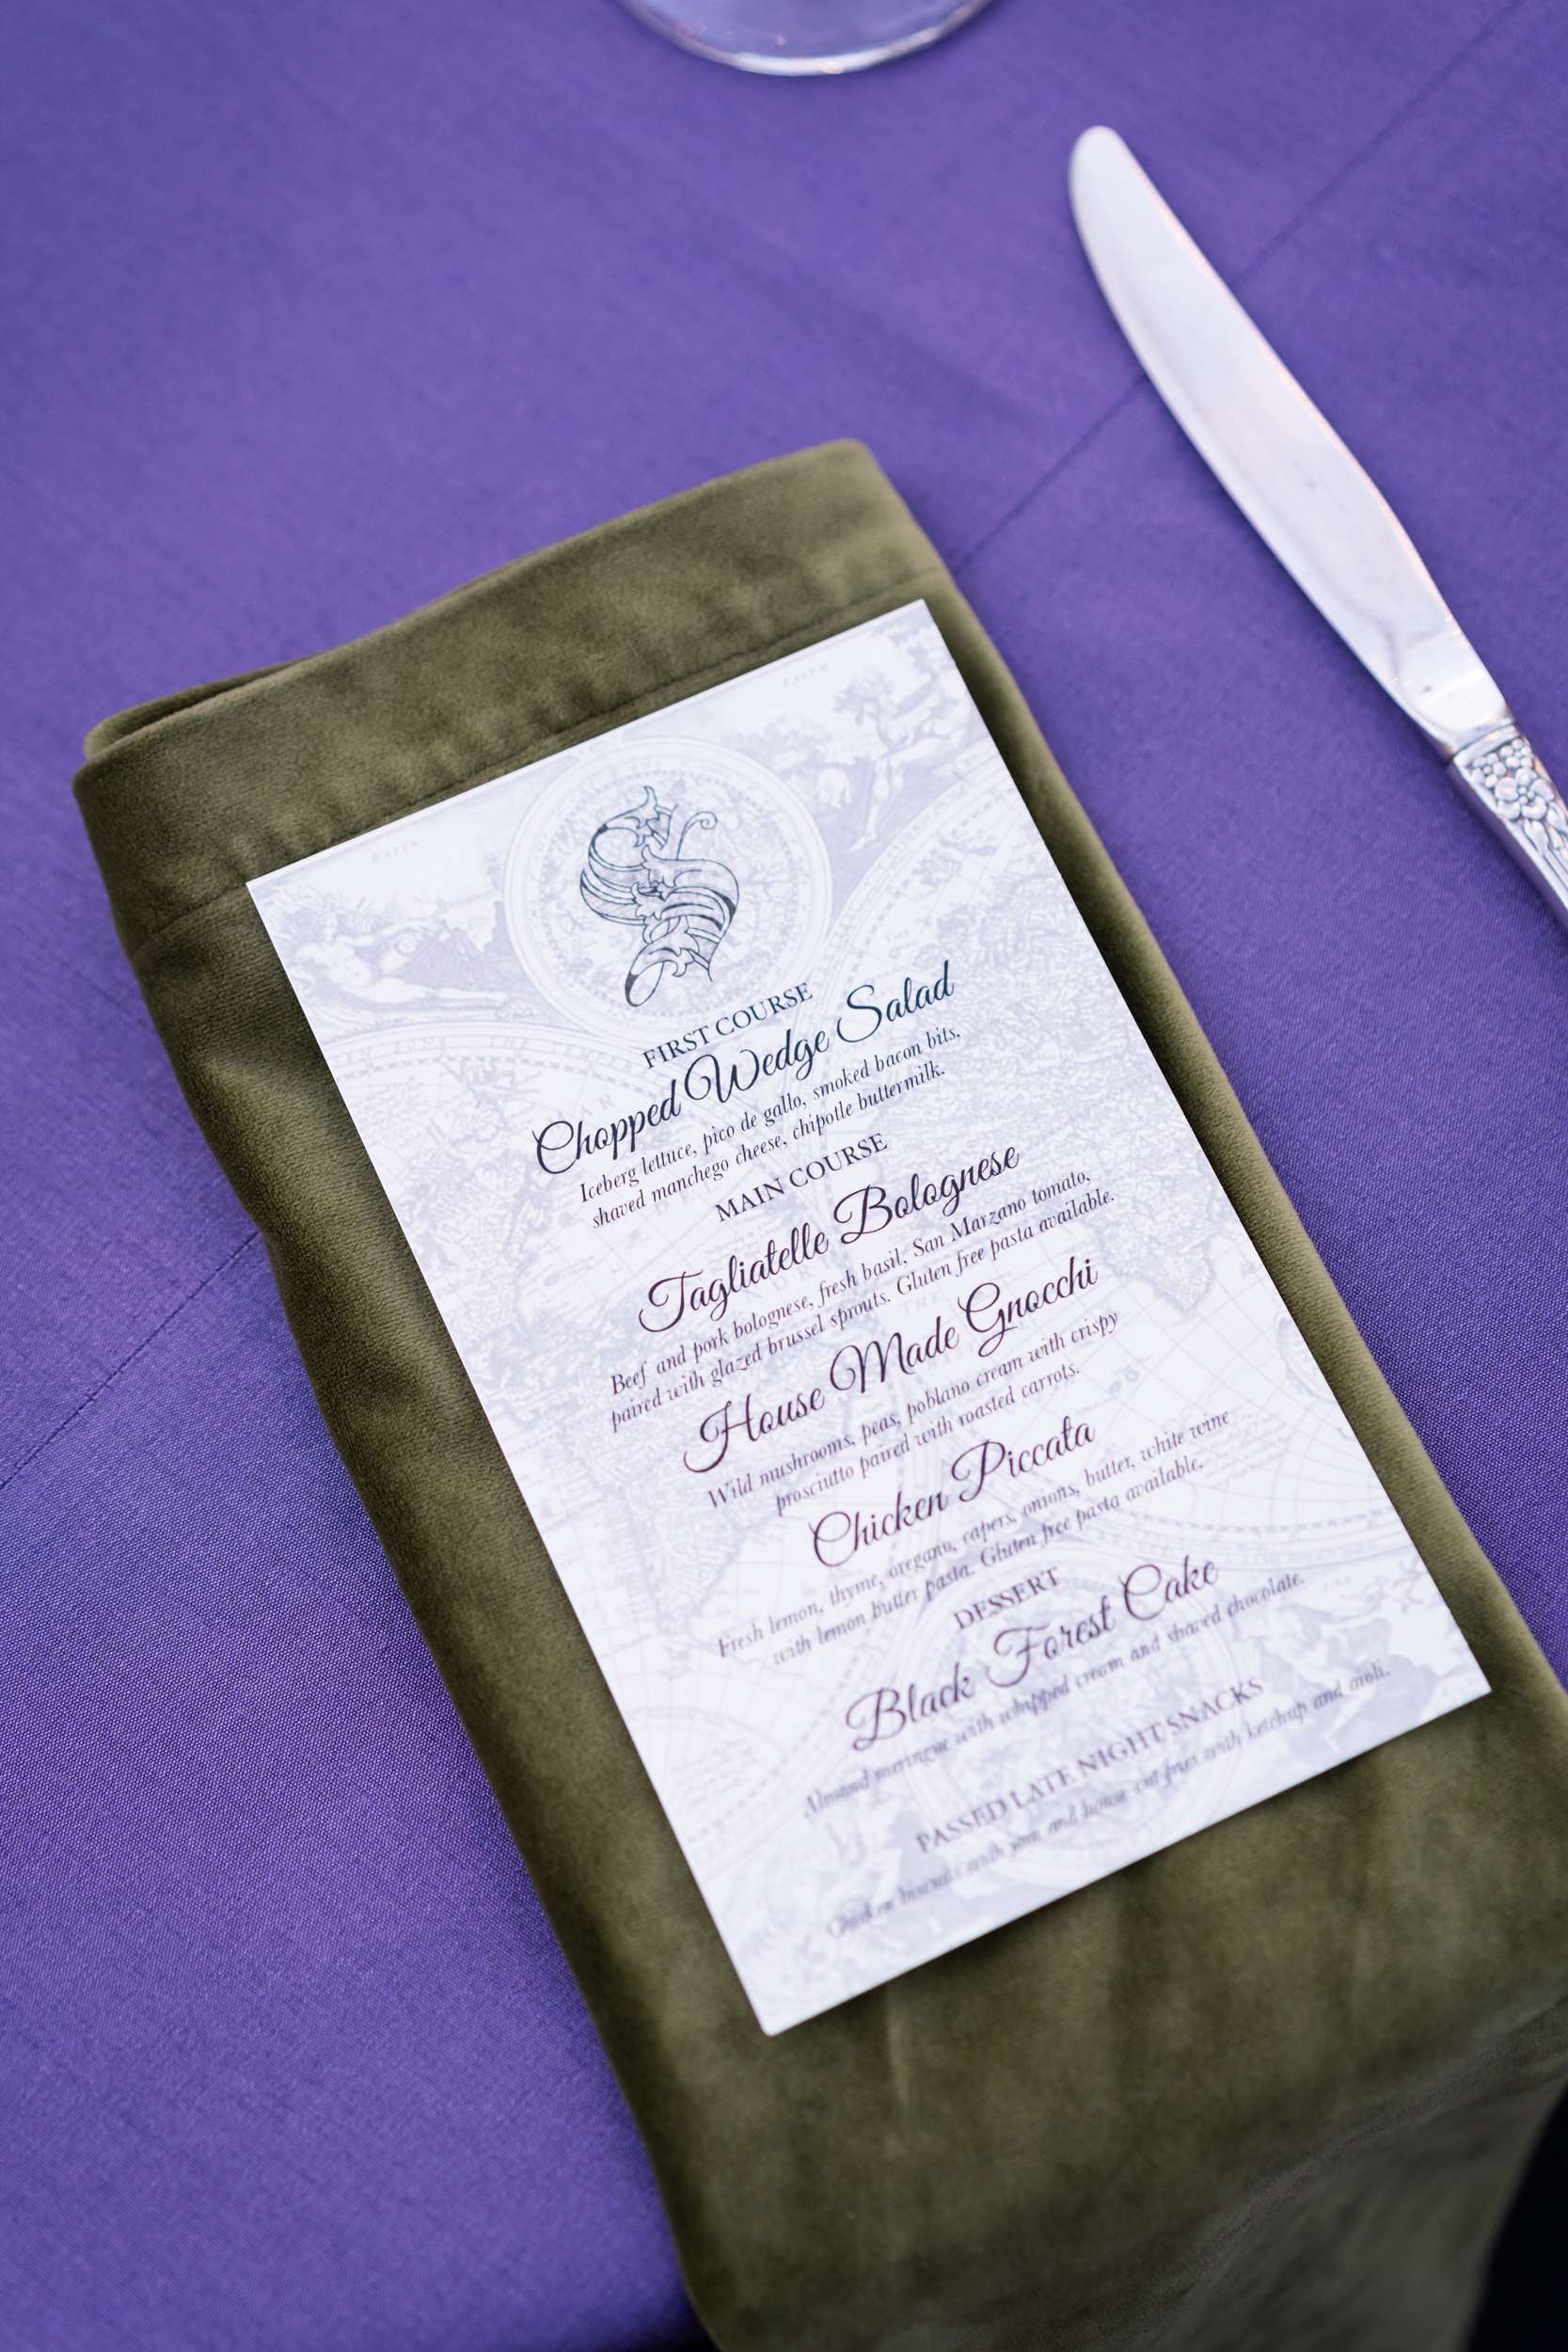 S
FIRST COURSE
Chopped Wedge Salad
Iceberg lettuce, pico de gallo, smoked bacon bits,
shaved manchego cheese, chipotle buttermilk.
MAIN COURSE
Tagliatelle Bolognese
Beef and pork bolognese, fresh basil, San Marzano tomato,
paired with glazed brussel sprouts. Gluten free pasta available.
House Made Gnocchi
Wild mushrooms, peas, poblano cream with crispy
prosciutto paired with roasted carrots.
Chicken Piccata
Fresh lemon, thyme, oregano, capers, onions, butter, white wine
with lemon butter pasta. Gluten free pasta available.
DESSERT
Black Forest Cake
Almond meringue with whipped cream and shaved chocolate.
PASSED LATE NIGHT SNACKS
Chicken biscuits with jam and house cut fries with ketchup and aioli.